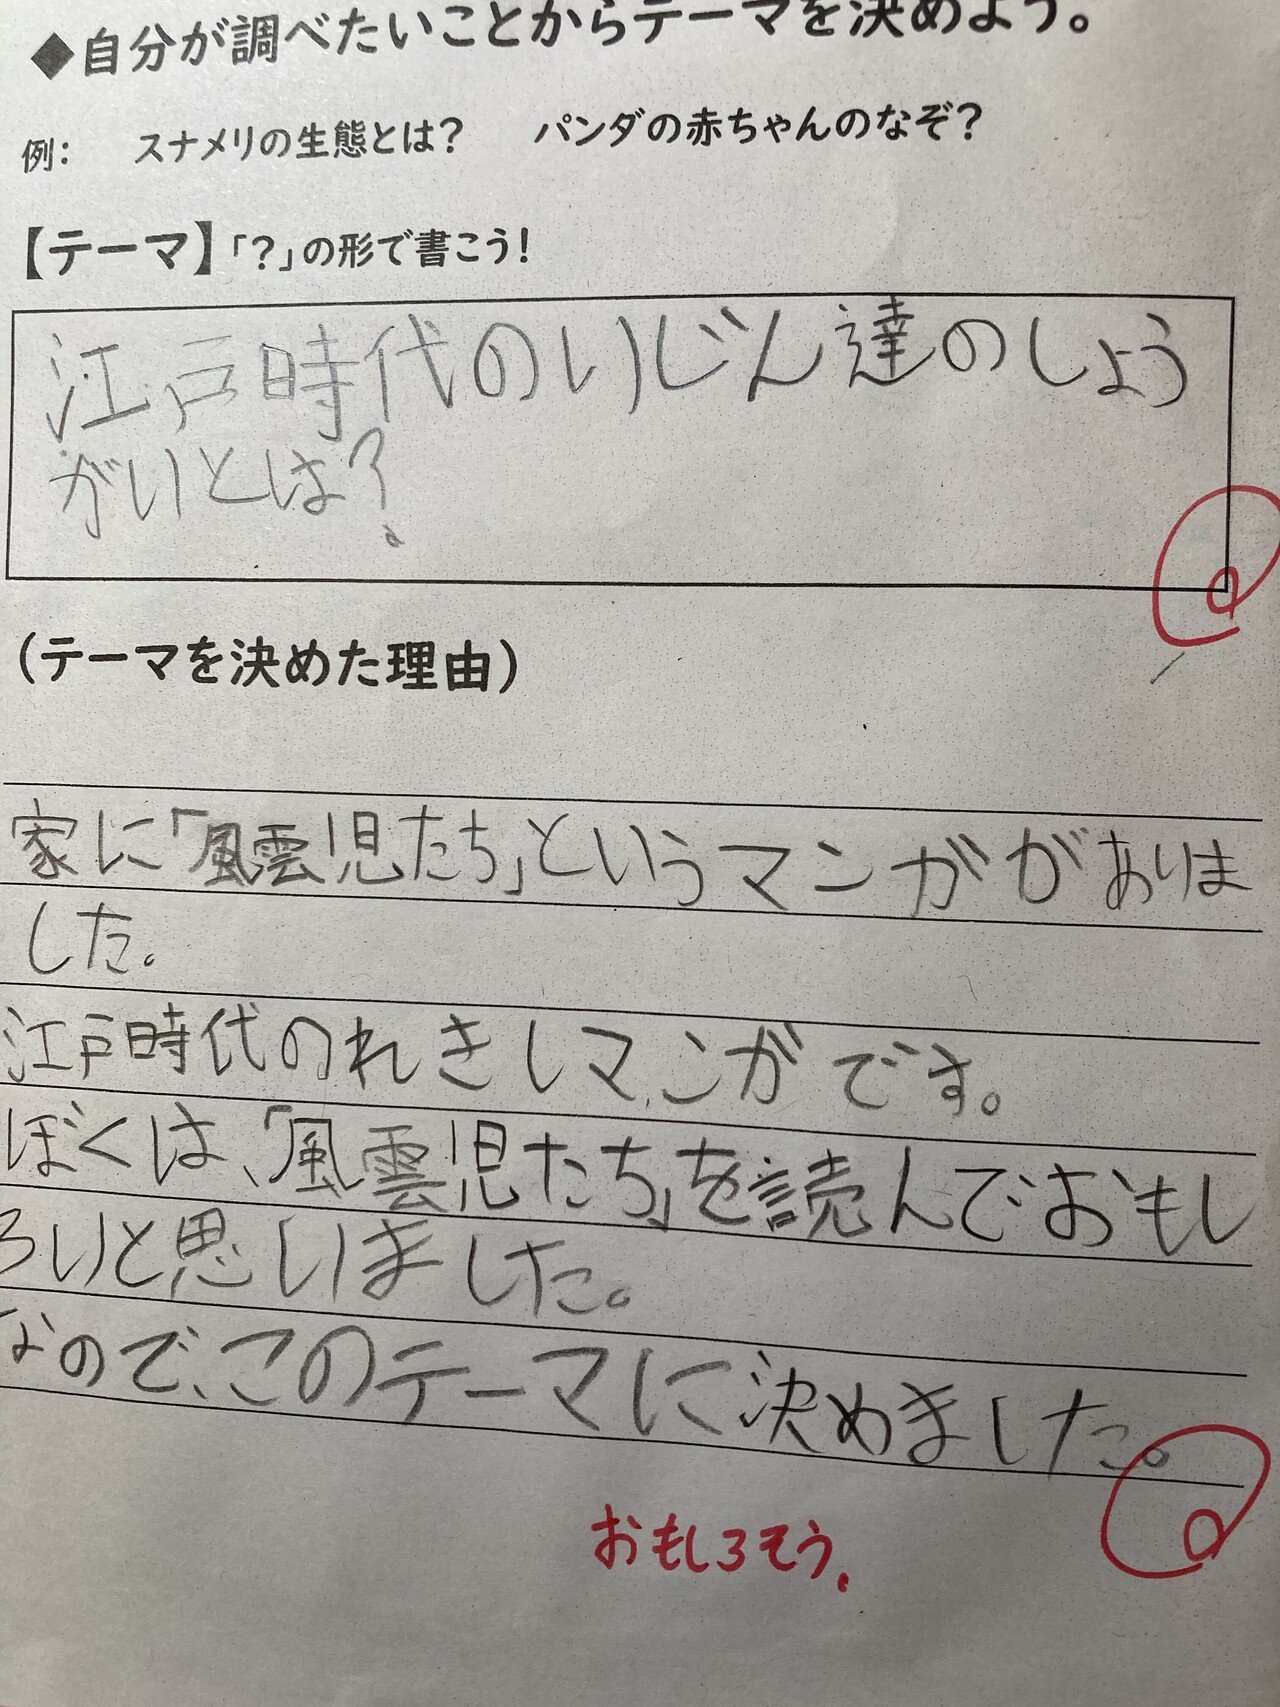 ◆自分が調べたいことからテーマを決めよう。
例： スナメリの生態とは？ パンダの赤ちゃんのなぞ？
【テーマ】「？」の形で書こう！
江戸時代のいじん達のしょう
がいとは？
（テーマを決めた理由）
家に「風雲児たち」というマンガがありま
した。
江戸時代のれきしマンガです。
ぼくは、「風雲児たち」を読んでおもし
ろいと思いました。
なので、このテーマに決めました。
おもしろそう。